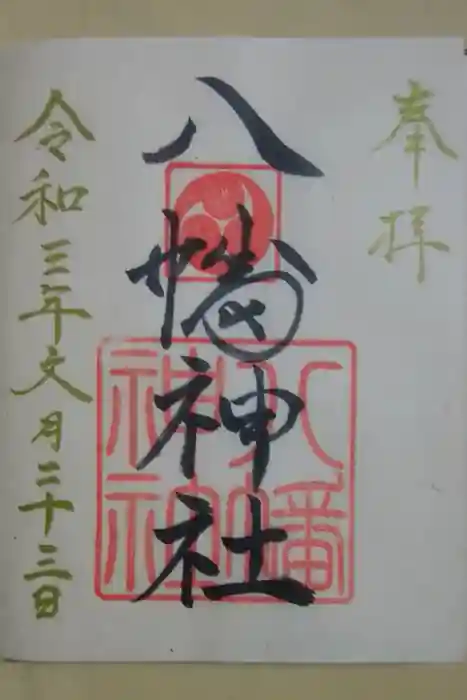 奉拝
八幡神社
八幡神社
令和三年文月二十三日